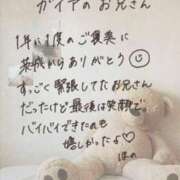 ガイアのお兄さん
1年に1度のご褒美に
来てくれてありがとう☺
すっごく緊張してたお兄さん
だったけど最後は笑顔で
バイバイできたのも
嬉しかったよ♡
ほの